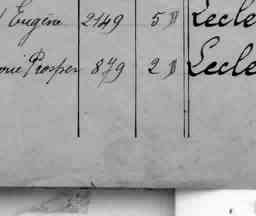 Eugène 2149 5 D Lecle
Prosper 879 2 D Lecle